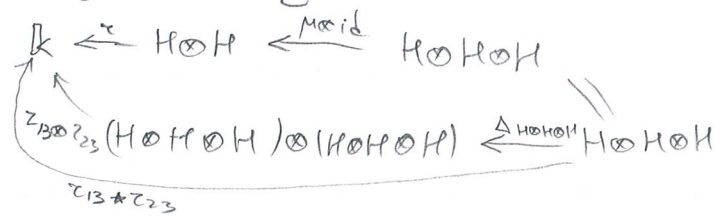 𝕜 ← τ H⊗H ← μ⊗id H⊗H⊗H
τ₁₃⊗τ₂₃ (H⊗H⊗H)⊗(H⊗H⊗H) ← Δ H⊗H⊗H H⊗H⊗H
τ₁₃ ⋆ τ₂₃